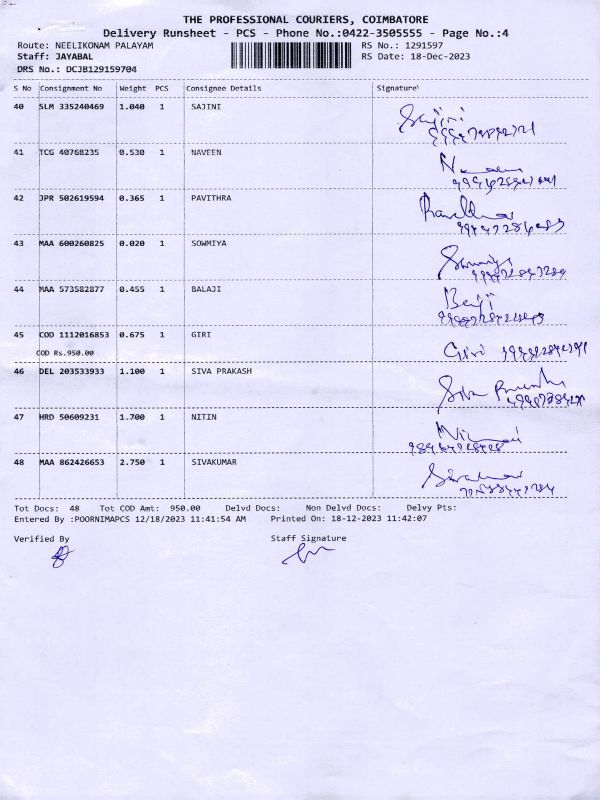 THE PROFESSIONAL COURIERS, COIMBATORE
Delivery Runsheet - PCS - Phone No.:0422-3505555 - Page No.:4
Route: NEELIKONAM PALAYAM RS No.: 1291597
Staff: JAYABAL RS Date: 18-Dec-2023
DRS No.: DCJB129159704
S No Consignment No Weight PCS Consignee Details Signature
40 SLM 335240469 1.040 1 SAJINI Sajini
41 TCG 40768235 0.530 1 NAVEEN
42 JPR 502619594 0.365 1 PAVITHRA
43 MAA 600260825 0.020 1 SOWMIYA
44 MAA 573582877 0.455 1 BALAJI
45 COD 1112016853 0.675 1 GIRI Giri
COD Rs.950.00
46 DEL 203533933 1.100 1 SIVA PRAKASH
47 HRD 50609231 1.700 1 NITIN
48 MAA 862426653 2.750 1 SIVAKUMAR
Tot Docs: 48 Tot COD Amt: 950.00 Delvd Docs: Non Delvd Docs: Delvy Pts:
Entered By :POORNIMAPCS 12/18/2023 11:41:54 AM Printed On: 18-12-2023 11:42:07
Verified By Staff Signature